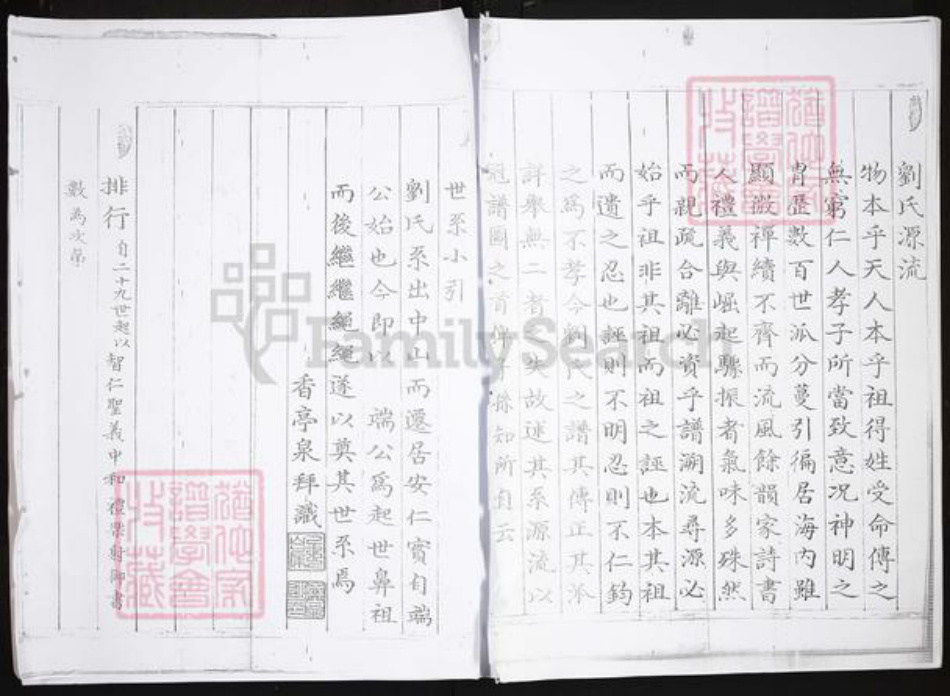 劉氏源流
物本乎天人本乎祖得姓受命傳之
無窮仁人孝子所當致意况神明之
冑歷數百世派分蔓引徧居海内雖
顯微禪續不齊而流風餘韻家詩書
人禮義與崛起驟振者氣味多殊然
而親疏合離必資乎譜溯流尋源必
始乎祖非其祖而祖之誣也本其祖
而遺之忍也誣則不明忍則不仁鈞
之爲不孝今劉氏之譜其傳正其派
詳舉無二者失故述其系源流以
冠譜圖之首俾後知所自云
世系小引
劉氏系出中山而遷居安仁實自端
公始也今即以 端公爲起世鼻祖
而後繼繼繩繩遂以奠其世系焉
香亭泉拜識
排行 自二十九世起以 智仁聖義中和 禮樂射御書
數 爲次第
FamilySearch